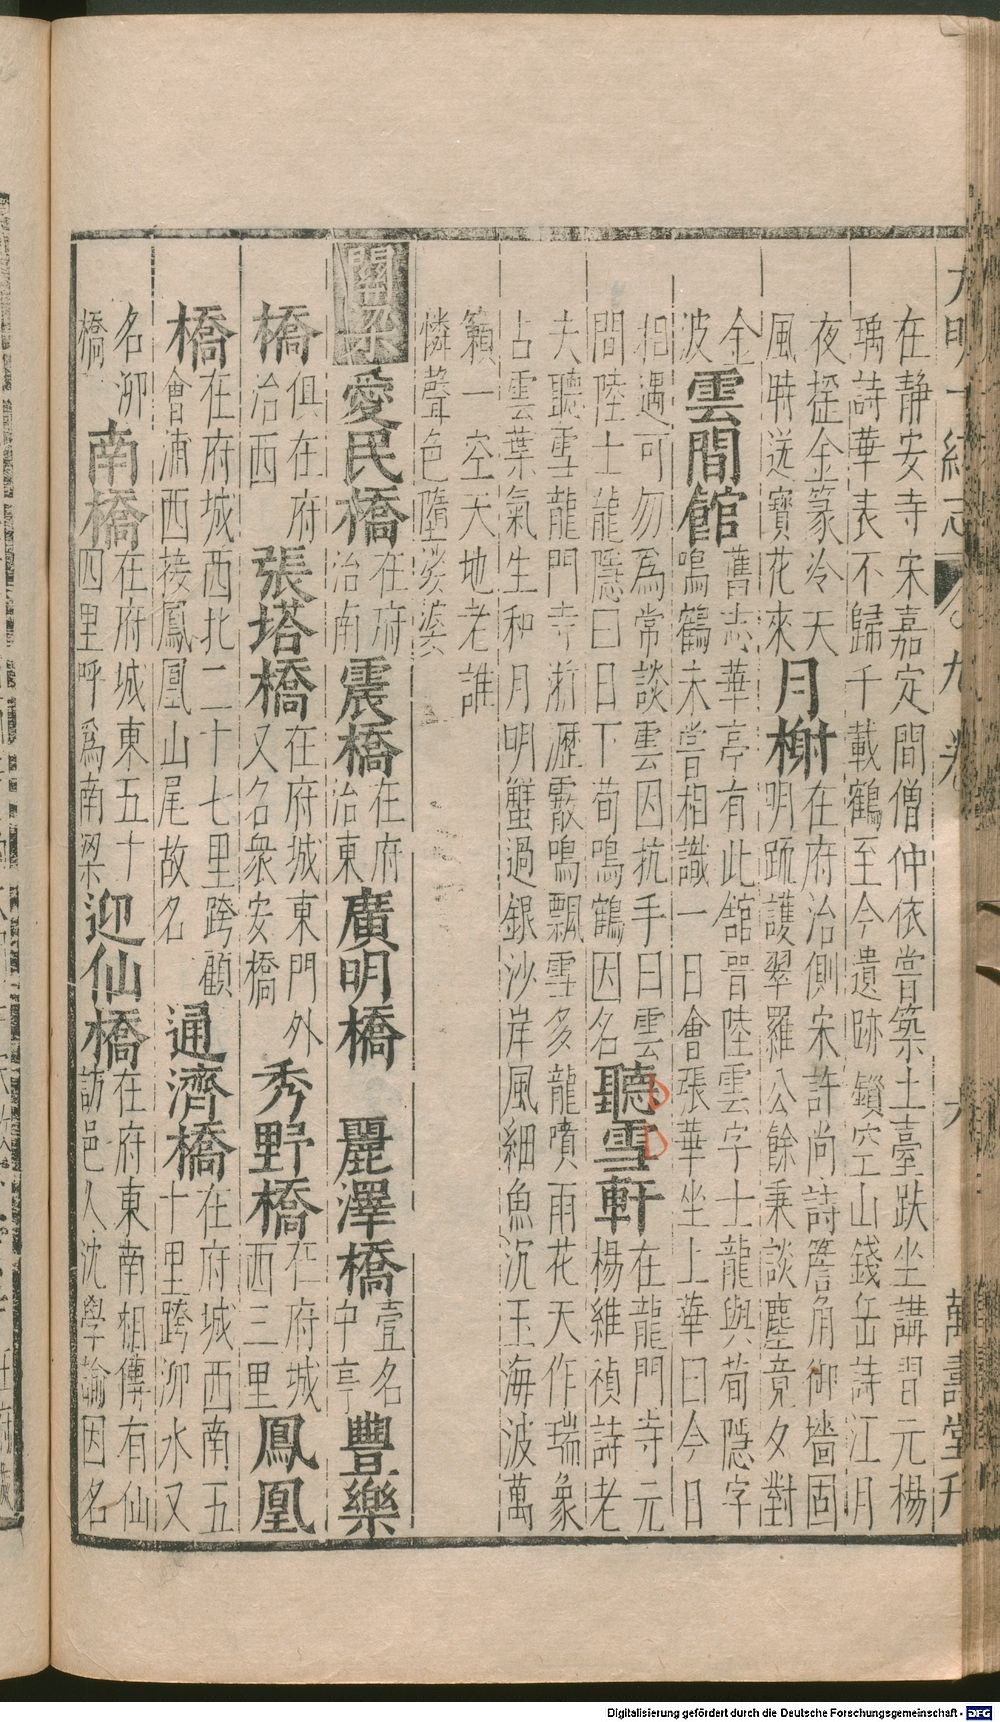 大明一統志 卷九 六 萬壽堂刊
在靜安寺宋嘉定間僧仲依嘗築土臺趺坐講習元楊
瑀詩華表不歸千載鶴至今遺跡鎖空山錢岳詩江月
夜搖金篆冷天
風時送寶花來
月榭
在府治側宋許尚詩簷角御墻固
明䟽護翠羅公餘秉談麈竟夕對
金
波
雲間館
舊志華亭有此舘晉陸雲字士龍與荀隱字
鳴鶴未嘗相識一日會張華坐上華曰今日
相遇可勿爲常談雲因抗手曰雲
間陸士龍隱曰日下荀鳴鶴因名
聽雪軒
在龍門寺元
楊維禎詩老
夫聽雪龍門寺淅瀝霰鳴飄雪多龍噴雨花天作瑞象
占雲葉氣生和月明蟹過銀沙岸風細魚沉玉海波萬
籟一空天地老誰
憐聲色墮娑婆
關梁
愛民橋
在府
治南
震橋
在府
治東
廣明橋
麗澤橋
壹名
中亭
豐樂
橋
俱在府
治西
張塔橋
在府城東門外
又名衆安橋
秀野橋
在府城
西三里
鳳凰
橋
在府城西北二十七里跨顧
會浦西接鳳凰山尾故名
通濟橋
在府城西南五
十里跨泖水又
名泖
橋
南橋
在府城東五十
四里呼爲南梁
迎仙橋
在府東南相傳有仙
訪邑人沈學諭因名
Digitalisierung gefördert durch die Deutsche Forschungsgemeinschaft - DFG